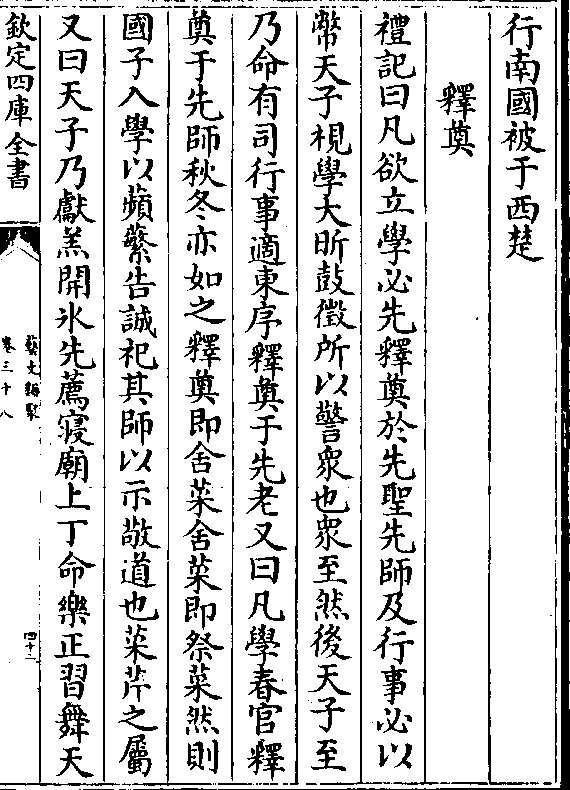 行南國被于西楚
釋奠
禮記曰凡欲立學必先釋奠於先聖先師及行事必以
幣天子視學大昕鼓徵所以警衆也衆至然後天子至
乃命有司行事適東序釋奠于先老又曰凡學春官釋
奠于先師秋冬亦如之釋奠即舍菜舍菜即祭菜然則
國子入學以蘋蘩告誠祀其師以示敬道也菜芹之屬
又曰天子乃獻羔開冰先薦寝廟上丁命樂正習舞天
欽定四庫全書
藝文類聚
卷三十八
四十二